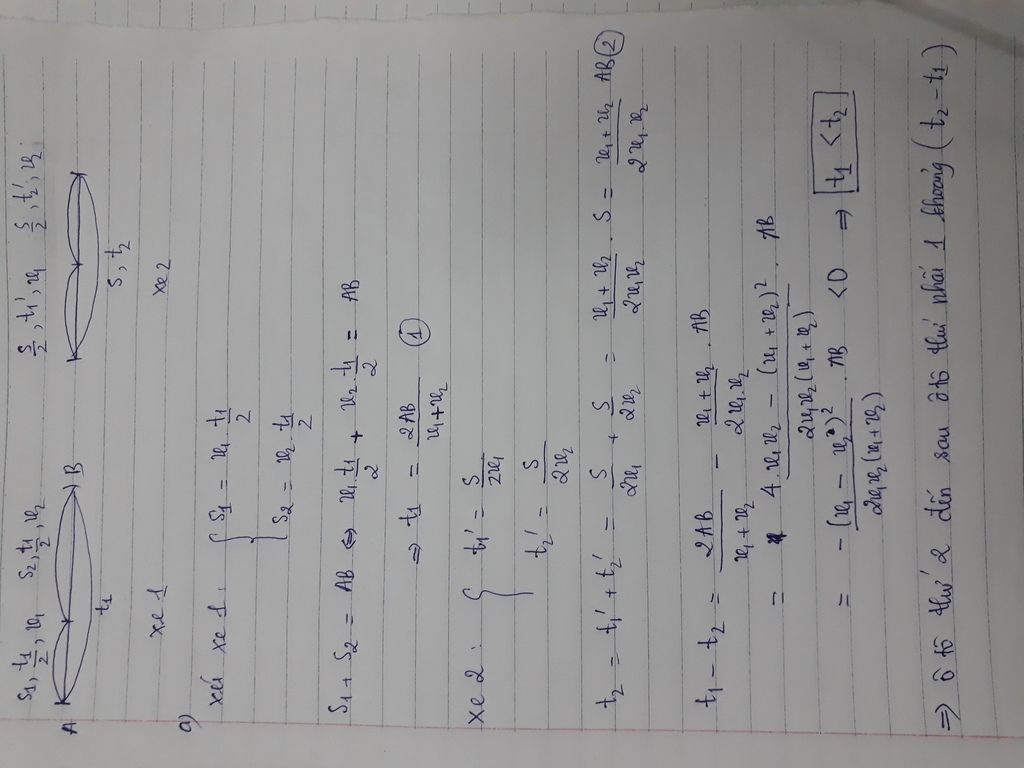 S1, t1/2, v1 S2, t1/2, v2 S/2, t1', v1 S/2, t2', v2
A B
t1 S, t2
xe 1 xe 2
a)
xét xe 1 : { S1 = v1 . t1/2
S2 = v2 . t1/2
S1 + S2 = AB ⇔ v1 . t1/2 + v2 . t1/2 = AB
⇒ t1 = 2AB/(v1+v2) ①
xe 2 : { t1' = S/2v1
t2' = S/2v2
t2 = t1' + t2' = S/2v1 + S/2v2 = (v1+v2)/2v1v2 . S = (v1+v2)/2v1.v2 AB ②
t1 - t2 = 2AB/(v1+v2) - (v1+v2)/2v1.v2 . AB
= (4.v1.v2 - (v1+v2)²)/2v1v2(v1+v2) . AB
= -(v1 - v2)²/2v1v2(v1+v2) . AB < 0 ⇒ t1 < t2
⇒ ô tô thứ 2 đến sau ô tô thứ nhất 1 khoảng (t2 - t1)